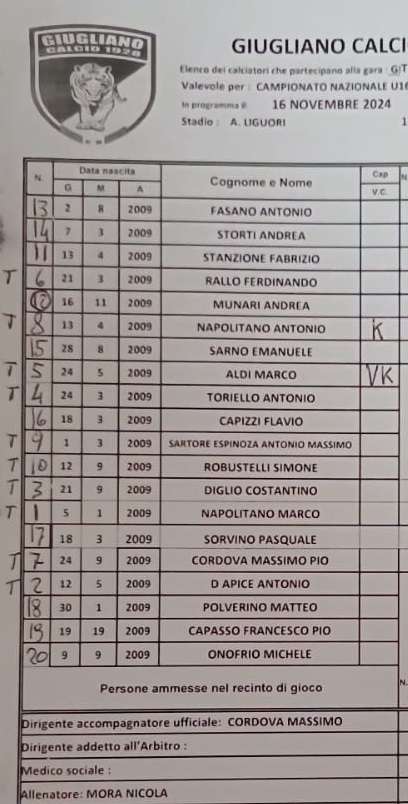 GIUGLIANO
CALCIO 1928
GIUGLIANO CALCI
Elenco dei calciatori che partecipano alla gara : GIT
Valevole per : CAMPIONATO NAZIONALE U16
In programma il: 16 NOVEMBRE 2024
Stadio : A. LIGUORI 1
N. Data nascita Cognome e Nome Cap N
G M A V.C.
13 2 8 2009 FASANO ANTONIO
14 7 3 2009 STORTI ANDREA
11 13 4 2009 STANZIONE FABRIZIO
T 6 21 3 2009 RALLO FERDINANDO
12 16 11 2009 MUNARI ANDREA
T 8 13 4 2009 NAPOLITANO ANTONIO K
15 28 8 2009 SARNO EMANUELE
T 5 24 5 2009 ALDI MARCO VK
T 4 24 3 2009 TORIELLO ANTONIO
16 18 3 2009 CAPIZZI FLAVIO
T 9 1 3 2009 SARTORE ESPINOZA ANTONIO MASSIMO
T 10 12 9 2009 ROBUSTELLI SIMONE
T 3 21 9 2009 DIGLIO COSTANTINO
T 1 5 1 2009 NAPOLITANO MARCO
17 18 3 2009 SORVINO PASQUALE
T 7 24 9 2009 CORDOVA MASSIMO PIO
T 2 12 5 2009 D APICE ANTONIO
18 30 1 2009 POLVERINO MATTEO
19 19 19 2009 CAPASSO FRANCESCO PIO
20 9 9 2009 ONOFRIO MICHELE
Persone ammesse nel recinto di gioco N.
Dirigente accompagnatore ufficiale: CORDOVA MASSIMO
Dirigente addetto all'Arbitro :
Medico sociale :
Allenatore: MORA NICOLA